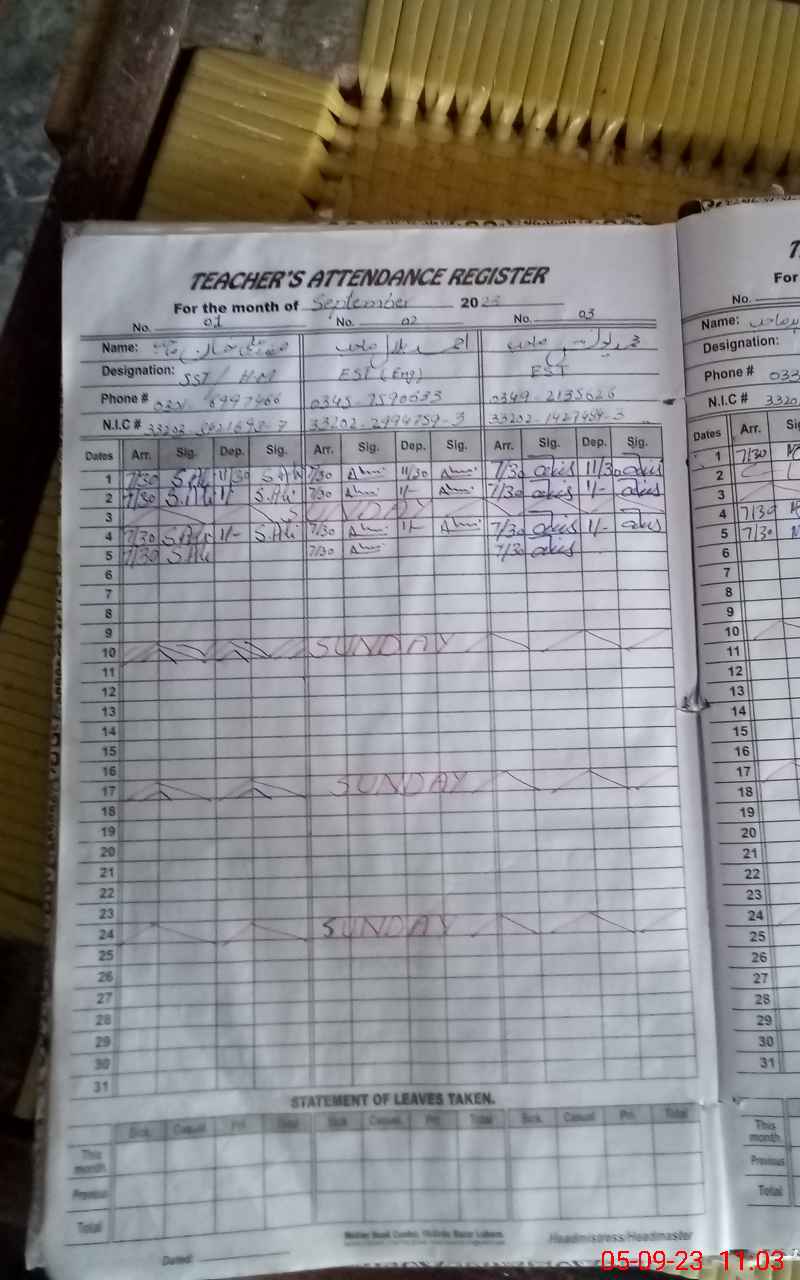 TEACHER'S ATTENDANCE REGISTER
For the month of September 2023
No. 01 No. 02 No. 03
Name: صاحب صاحب
Designation: SST / HM EST (Eng) EST
Phone # 0345-7590633 0349-2135626
N.I.C # 33202-2994759-3 33202-1427484-3
Dates Arr. Sig. Dep. Sig. Arr. Sig. Dep. Sig. Arr. Sig. Dep. Sig.
1 7/30 S.Ali 11/30 S.Ali 7/30 11/30 7/30 11/30
2 7/30 S.Ali 1/- S.Ali 7/30 1/- 7/30 1/-
3 SUNDAY
4 7/30 S.Ali 1/- S.Ali 7/30 1/- 7/30 1/-
5 7/30 S.Ali 7/30 7/30
6
7
8
9
10 SUNDAY
11
12
13
14
15
16
17 SUNDAY
18
19
20
21
22
23
24 SUNDAY
25
26
27
28
29
30
31
STATEMENT OF LEAVES TAKEN.
Sick Casual Pri. Total Sick Casual Pri. Total Sick Casual Pri. Total
This month
Previous
Total
Headmistress/Headmaster
Dated:
T
For
No.
Name:
Designation:
Phone # 033
N.I.C # 3320
Dates Arr. Sig
1 7/30
2
3
4 7/30
5 7/30
6
7
8
9
10
11
12
13
14
15
16
17
18
19
20
21
22
23
24
25
26
27
28
29
30
31
This month
Previous
Total
05-09-23 11.03